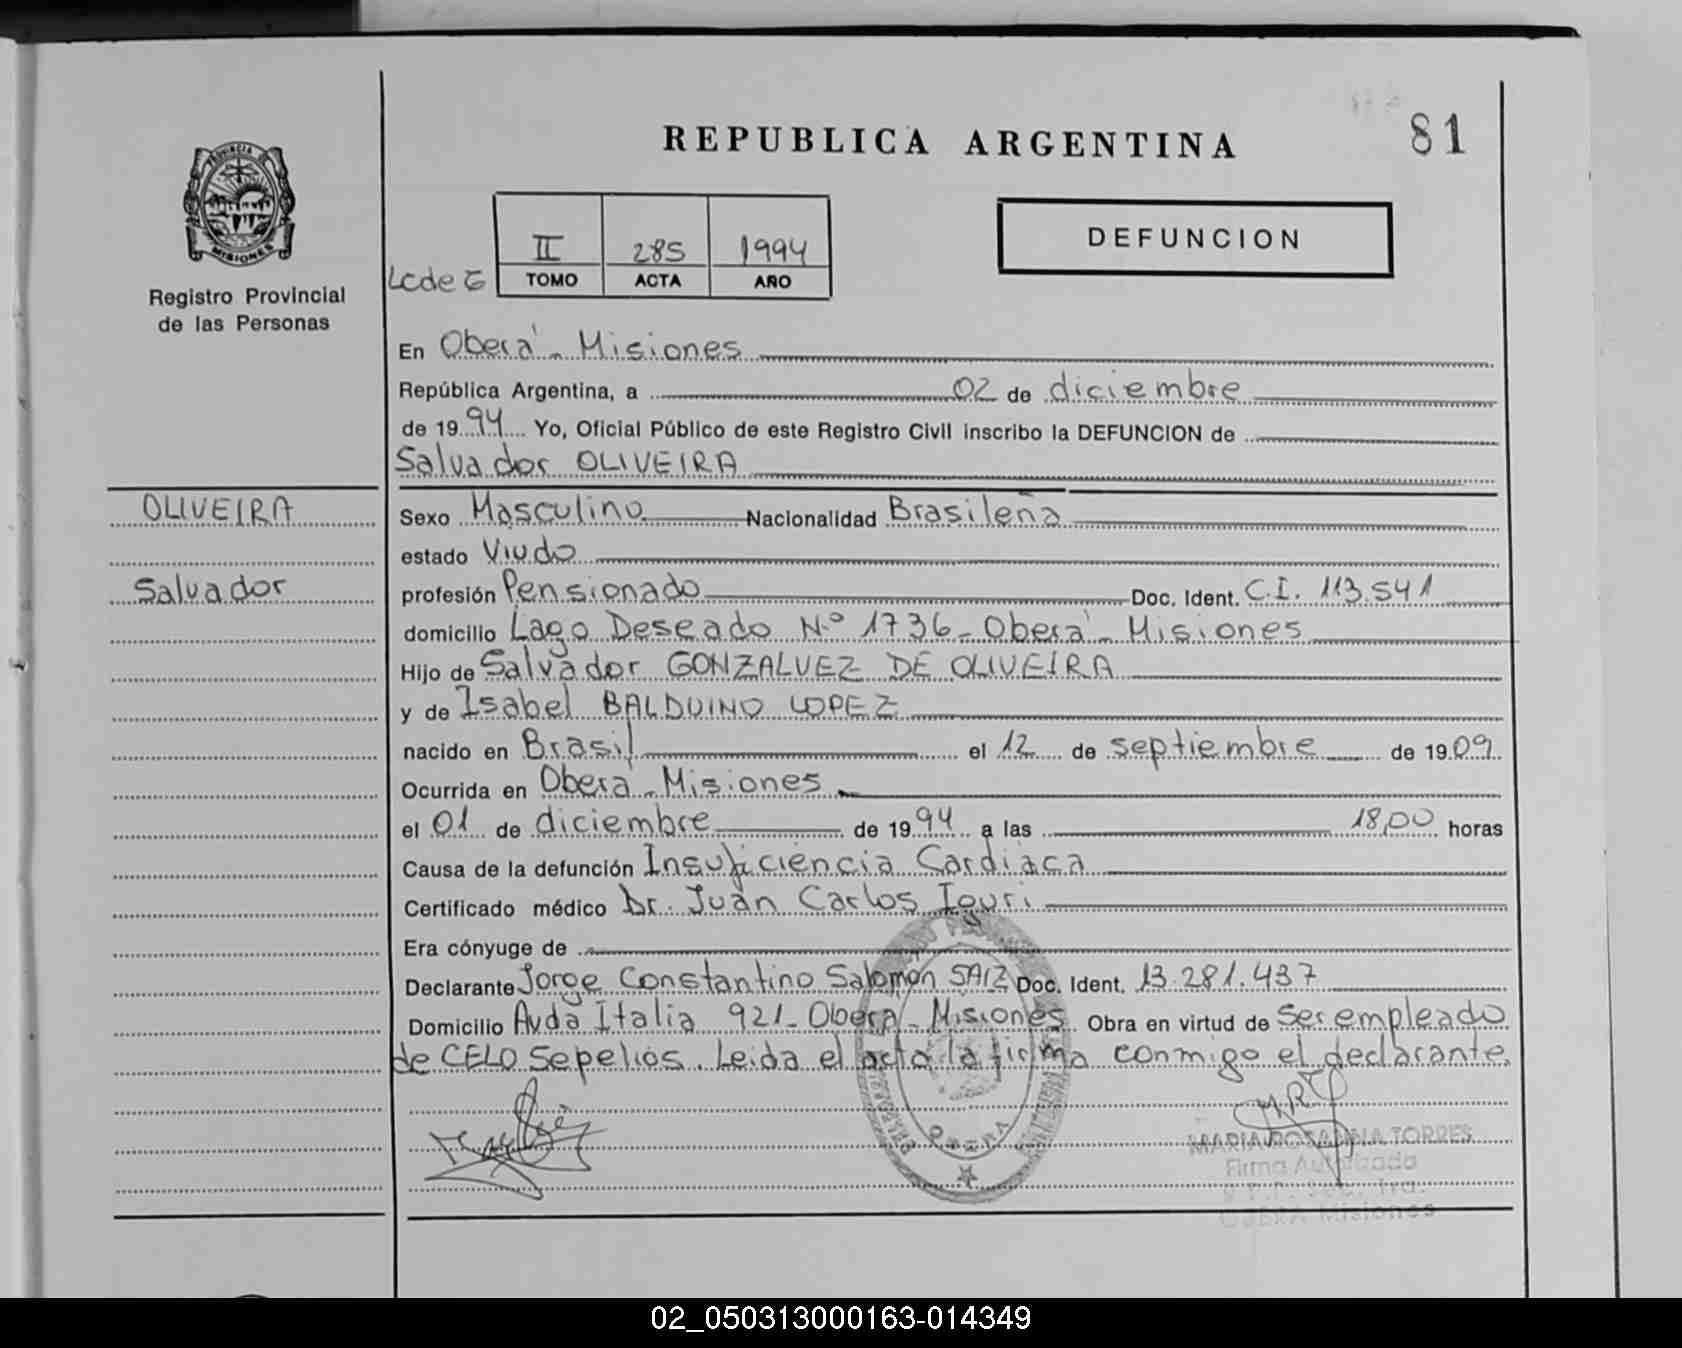 REPUBLICA ARGENTINA
81
PROVINCIA DE
MISIONES
Registro Provincial
de las Personas
DEFUNCION
II 285 1994
TOMO ACTA AÑO
En Oberá - Misiones
República Argentina, a 02 de diciembre
de 1994 Yo, Oficial Público de este Registro Civil inscribo la DEFUNCION de
Salvador OLIVEIRA
OLIVEIRA
Salvador
Sexo Masculino Nacionalidad Brasileña
estado Viudo
profesión Pensionado Doc. Ident. C.I. 113.541
domicilio Lago Deseado N.º 1736 - Oberá - Misiones
Hijo de Salvador GONZALVEZ DE OLIVEIRA
y de Isabel BALDUINO LOPEZ
nacido en Brasil el 12 de septiembre de 1909
Ocurrida en Oberá - Misiones
el 01 de diciembre de 1994 a las 18,00 horas
Causa de la defunción Insuficiencia Cardiaca
Certificado médico Dr. Juan Carlos Iguri
Era cónyuge de
Declarante Jorge Constantino Salomón SAIZ Doc. Ident. 13.281.437
Domicilio Avda Italia 921 - Oberá - Misiones Obra en virtud de Ser empleado
de CELO Sepelios. Leida el acta la firma conmigo el declarante.
OBERA
MARIA ROSANNA TORRES
Firma Autorizada
OBERA Misiones
02_050313000163-014349